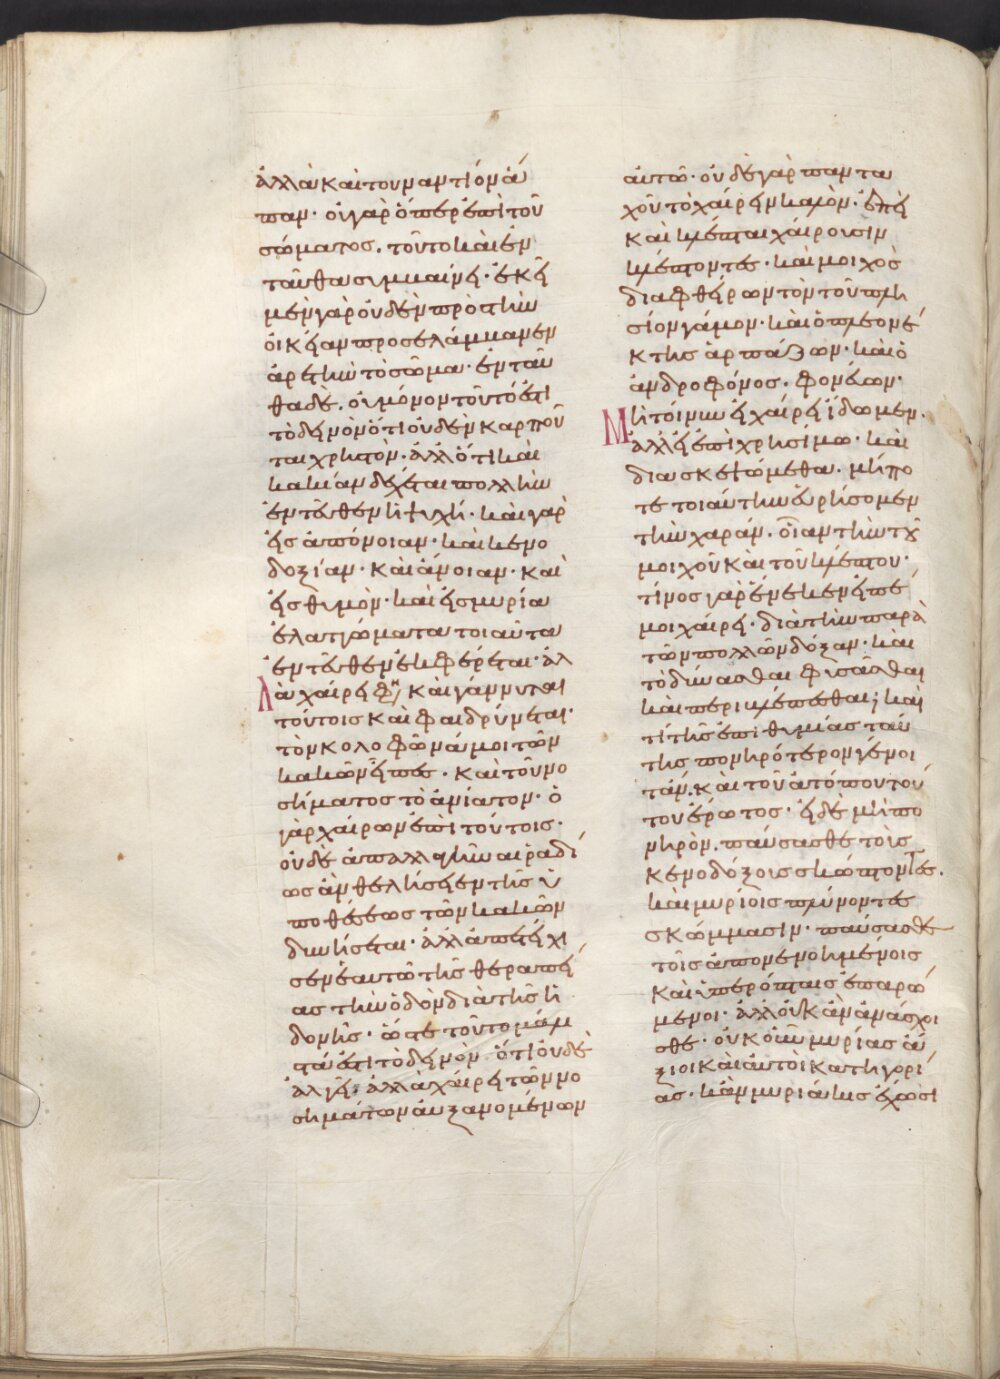 ἀλλὰ καὶ τουναντίον ἅ
παν· οὐ γὰρ ὅπερ ἐπὶ τοῦ
σώματος. τοῦτο καὶ ἐν
ταῦθα συμβαίνει· ἐκεῖ
μὲν γὰρ οὐδὲν πρὸς τὴν
οἰκείαν προσελάμβανεν
ἀρετὴν τὸ σῶμα· ἐνταῦ
θα δὲ. οὐ μόνον τοῦτό ἐστι
τὸ δεινὸν ὅτι οὐδὲν καρποῦ
ται χρηστὸν· ἀλλ' ὅτι καὶ
κακίαν δέχεται πολλὴν
ἐντεῦθεν ἡ ψυχή· καὶ γὰρ
εἰς ἀπόνοιαν· καὶ κενο
δοξίαν· καὶ ἄνοιαν· καὶ
εἰς θυμὸν· καὶ εἰς μυρία
ἐλαττώματα τοιαῦτα
ἐντεῦθεν ἐκφέρεται· ἀλ
λὰ χαίρει φη καὶ γάννυται
τούτοις καὶ φαιδρύνεται·
τὸν κολοφῶνά μοι τῶν
κακῶν εἶπες· καὶ τοῦ νο
σήματος τὸ ἀνίατον· ὁ
γὰρ χαίρων ἐπὶ τούτοις·
οὐδὲ ἀπαλλαγῆναι ῥαδί
ως ἂν θελήσειεν τῆς ὑ
ποθέσεως τῶν κακῶν
δυνήσεται· ἀλλ' ἀπετείχι
σεν ἑαυτῶ τῆς θεραπεί
ας τὴν ὁδὸν διὰ τῆς ἡ
δονῆς· ὥστε τοῦτο μάλι
στά ἐστι τὸ δεινὸν ὅτι οὐδὲ
ἀλγεῖ· ἀλλὰ χαίρει τῶν νο
σημάτων αὐξανομένων
αὐτῶ· οὐδὲ γὰρ παντα
χοῦ τὸ χαίρειν καλὸν· ἐπεὶ
καὶ κλέπται χαίρουσιν
κλέπτοντες· καὶ μοιχὸς
διαφθείρων τὸν τοῦ πλη
σίον γάμον· καὶ ὁ πλεονέ
κτης ἁρπάζων· καὶ ὁ
ἀνδροφόνος. φονεύων·
Μὴ τοίνυν εἰ χαίρει ἴδωμεν·
ἀλλ' εἰ ἐπὶ χρησίμω· καὶ
διασκεψώμεθα. μήπο
τε τοιαύτην εὑρήσομεν
τὴν χαράν. οἵαν τὴν τοῦ
μοιχοῦ καὶ τοῦ κλέπτου·
τίνος γὰρ ἕνεκεν εἰπέ
μοι χαίρει· διὰ τὴν παρὰ
τῶν πολλῶν δόξαν· καὶ
τὸ δύνασθαι φυσᾶσθαι
καὶ περιβλέπεσθαι; καὶ
τί τῆς ἐπιθυμίας ταύ
της πονηρότερον γένοι
τ' ἄν. καὶ τοῦ ἀτόπου τού
του ἔρωτος· εἰ δὲ μὴ πο
νηρὸν. παύσασθε τοὺς
κενοδόξους σκώπτοντες.
καὶ μυρίοις πλύνοντες
σκώμμασιν· παύσασθε
τοῖς ἀπονενοημένοις
καὶ ὑπερόπταις ἐπαρώ
μενοι· ἀλλ' οὐκ ἂν ἀνάσχοι
σθε· οὐκοῦν μυρίας ἄ
ξιοι καὶ αὐτοὶ κατηγορί
ας· κἂν μυριάκις ἔχωσι